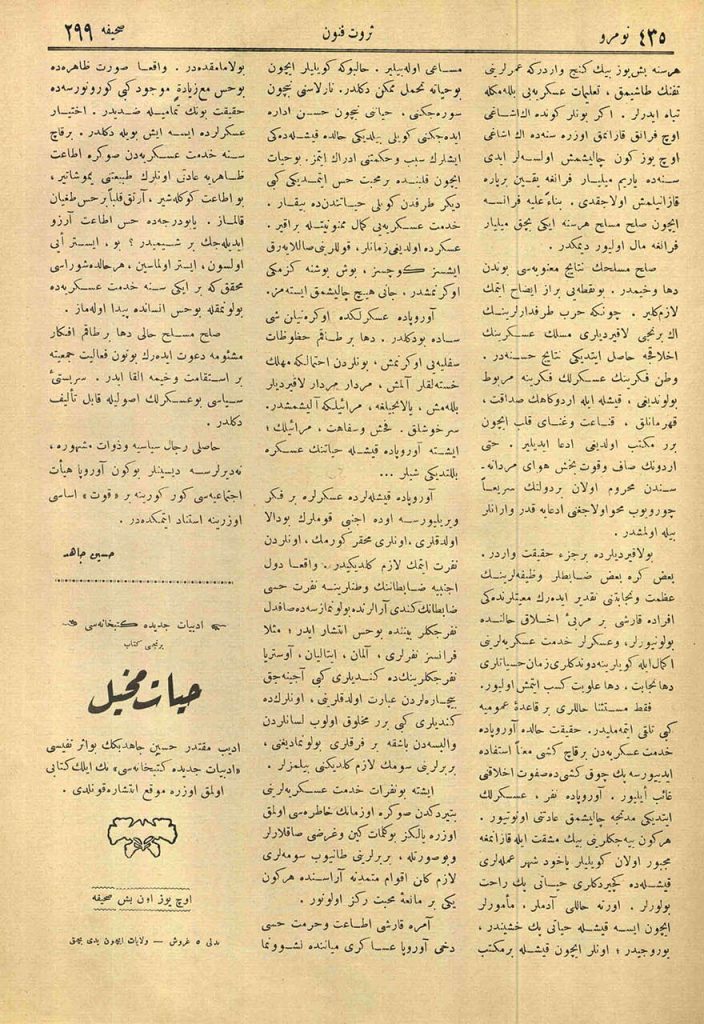 نومرو ٤٣٥
ثروت فنون
صحیفه ٢٩٩
هر سنه بش یوز بیك كنج واردركه عمرلرینی
تفنك طاشیمق ، تعلیمات عسكریه‌یی بللمكله
تباه ایدرلر . اكر بونلر كونده اك‌اشاغی
اوچ فرانق قازانمق اوزره سنه‌ده اك اشاغی
اوچ یوز كون چالیشمش اولسه‌لر ایدی
سنه‌ده یاریم میلیار فرانغه یقین برپاره
قازانیلمش اولاجقدی . بناءً علیه فرانسه
ایچون صلح مسلح هرسنه ایكی بچق میلیار
فرانغه مال اولیور دیمكدر .
صلح مسلحك نتایج معنویه‌سی بوندن
دها وخیمدر . بونقطه‌یی براز ایضاح ایتمك
لازمكلیر . چونكه حرب طرفدارلرینك
اك برنجی لاقیردیلری مسلك عسكرینك
اخلاقجه حاصل ایتدیكی نتایج حسنه‌در .
وطن فكرینك عسكرلك فكرینه مربوط
بولوندیغی ، قیشله ایله اردوكاهك صداقت ،
قهرمانلق . قناعت وغنای قلب ایچون
برر مكتب اولدیغی ادعا ایدیلیر . حتی
اردونك صاف وقوت بخش هوای مردانه‌
سندن محروم اولان بردولتك سریعاً
چوروبوب محو اولاجغنی ادعایه قدر وارانلر
بیله اولمشدر .
بولاقیردیلرده برجزء حقیقت واردر .
بعض كره بعض ضابطلر وظیفه‌لرینك
عظمت ونجابتنی تقدیر ایده‌رك معیتلرنده‌كی
افراده قارشی بر مربئ اخلاق حالنده
بولونیورلر، وعسكرلر خدمت عسكریه‌لرینی
اكمال ایله كویلرینه دوندكلری زمان حسیاتلری
دها نجابت ، دها علویت كسب ایتمش اولیور.
فقط مستثنا حاللری بر قاعدهٔ عمومیه
كبی تلقی ایتمه‌ملیدر. حقیقت حالده آوروپاده
خدمت عسكریه‌دن برقاچ كشی معناً استفاده
ایدییورسه پك چوق كشی‌ده صفوت اخلاقنی
غائب ایلیور . آوروپاده نفر ، عسكرلك
ایتدیكی مدتجه چالیشمق عادتنی اونوتیور .
هركون ییه‌جكلرینی بیك مشقت ایله قازانمغه
مجبور اولان كویلیلر یاخود شهر عمله‌لری
قیشله‌ده كچیردكلری حیاتی پك راحت
بولورلر . اورته حاللی آدملر . مأمورلر
ایچون ایسه قیشله حیاتی پك خشیندر ،
یوروجیدر ؛ اونلر ایچون قیشله برمكتب
مساعی اوله‌بیلیر . حالبوكه كویلیلر ایچون
بوحیاته تحمل ممكن دكلدر. تارلاسنی نیچون
سوره‌جكنی . حیاتنی نیچون حسن اداره
ایده‌جكنی كویلی بیلدیكی حالده قیشله‌ده‌كی
ایشلرك سبب وحكمتنی ادراك ایتمز. بوحیات
ایچون قلبنده برمحبت حس ایتمدیكی كبی
دیكر طرفدن كویلی حیاتندن‌ده بیقار .
خدمت عسكریه‌یی كمال ممنونیتله براقیر .
عسكرده اولدیغی زمانلر ، قوللرینی صاللایه‌رق
ایشسز كوچسز ، بوش بوشنه كزمكی
اوكرنمشدر ، جانی هیچ چالیشمق ایسته‌مز.
آوروپاده عسكرلكده اوكره‌نیلن شی
ساده بودكلدر. دها بر طاقم حظوظات
سفلیه‌یی اوكرنمش ، بونلردن احتمالكه مهلك
خسته‌لقلر آلمش ، مردار مردار لاقیردیلر
بللمش ، یالانجیلغه ، مرائیلكه آلیشمشدر.
سرخوشلق . فحش وسفاهت ، مرائیلك ؛
ایشته آوروپاده قیشله حیاتنك عسكره
بللتدیكی شیلر ...
آوروپاده قیشله‌لرده عسكرلره بر فكر
ویریلیورسه اوده اجنبی قوملرك بودالا
اولدقلری ، اونلری محقر كورمك ، اونلردن
نفرت ایتمك لازم كلدیكیدر . واقعا دول
اجنبیه ضابطاننك وطنلرینه نفرت حسی
ضابطانك كندی آرالرنده بولونمازسه‌ده صافدل
نفرجكلر بیننده بوحس انتشار ایدر ؛ مثلا
فرانسز نفرلری ، آلمان ، ایتالیان ، آوستریا
نفرجكلرینك‌ده كندیلری كبی آجینه‌جق
بیچاره‌لردن عبارت اولدقلرینی ، اونلرك‌ده
كندیلری كبی برر مخلوق اولوب لسانلردن
والبسه‌دن باشقه بر فرقلری بولونمادیغنی ،
بربرلرینی سومك لازم كلدیكنی بیلمزلر .
ایشته بونفرات خدمت عسكریه‌لرینی
بتیردكدن صوكره اوزمانك خاطره‌سی اولمق
اوزره یالكز بوكلمات كین وغرضی صاقلارلر
وبوصورتله ، بربرلرینی طانیوب سومه‌لری
لازم كلن اقوام متمدنه آراسنده هركون
یكی بر مانعهٔ محبت ركز اولونور .
آمره قارشی اطاعت وحرمت حسی
دخی آوروپا عساكری میاننده نشوونما
بولامامقده‌در . واقعا صورت ظاهره‌ده
بوحس مع زیادةٍ موجود كبی كورونورسه‌ده
حقیقت بونك تمامیله ضدیدر . اختیار
عسكرلرده ایسه ایش بویله دكلدر . برقاچ
سنه خدمت عسكریه‌دن صوكره اطاعت
ظاهریه عادتی اونلرك طبیعتنی یموشاتیر ،
بو اطاعت كوكله‌شیر ، آرتق قلباً بر حس طغیان
قالماز . یابودرجه‌ده حس اطاعت آرزو
ایدیله‌جك بر شیمیدر ؟ بو ، ایستر أیی
اولسون ، ایستر اولماسین ، هرحالده شوراسی
محقق كه بر ایكی سنه خدمت عسكریه‌ده
بولونمقله بوحس انسانده پیدا اوله‌ماز .
صلح مسلح حالی دها بر طاقم افكار
مشئومه دعوت ایده‌رك بوتون فعالیت جمعیته
بر استقامت وخیمه القا ایدر . سربستئ
سیاسی بوعسكرلك اصولیله قابل تألیف
دكلدر .
حاصلی رجال سیاسیه وذوات مشهوره ،
نه‌دیرلرسه دیسینلر بوكون آوروپا هیأت
اجتماعیه‌سی كور كورینه بر « قوت » اساسی
اوزرینه استناد ایتمكده‌در .
حسین جاهد
ادبیات جدیده كتبخانه‌سی
برنجی كتاب
حیات مخیل
ادیب مقتدر حسین جاهدبكك بواثر نفیسی
«ادبیات جدیده كتبخانه‌سی» نك ایلك كتابی
اولمق اوزره موقع انتشاره قونلدی .
اوچ یوز اون بش صحیفه
بدلی ٥ غروش — ولایات ایچون یدی بچق